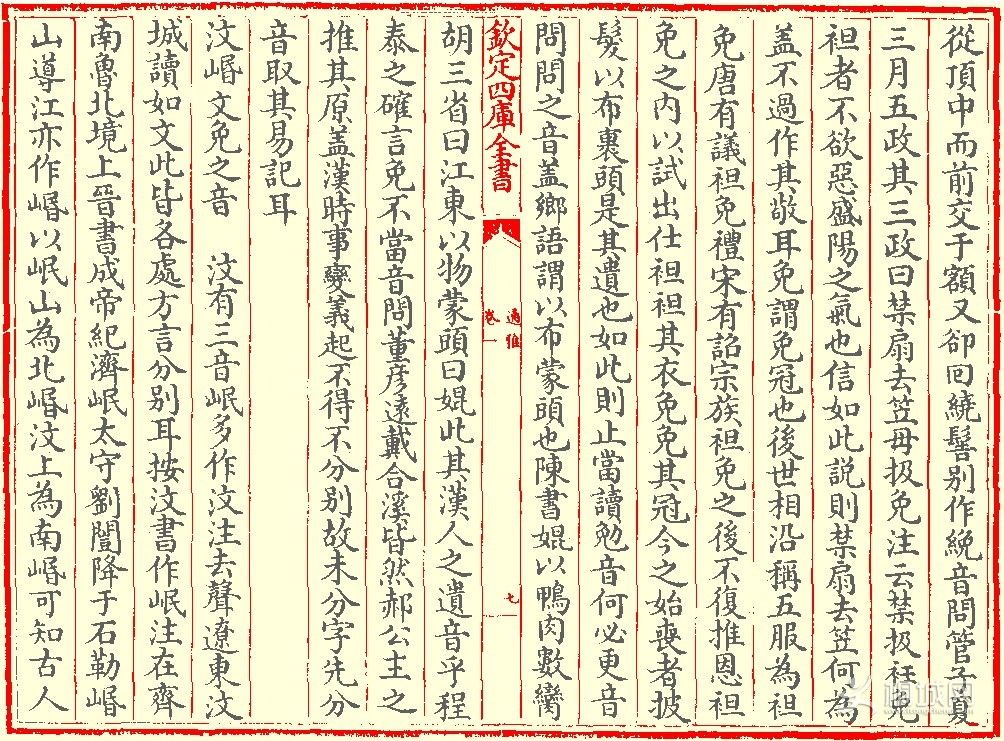 從頂中而前交于額又卻回繞髻別作絻音問管子夏
三月五政其三政曰禁扇去笠毋扱免注云禁扱衽免
袒者不欲惡盛陽之氣也信如此説則禁扇去笠何為
盖不過作其敬耳免謂免冠也後世相沿稱五服為袒
免唐有議袒免禮宋有詔宗族袒免之後不復推恩袒
免之内以試出仕袒袒其衣免免其冠今之始喪者披
髮以布裹頭是其遺也如此則止當讀勉音何必更音
問問之音盖鄉語謂以布蒙頭也陳書婫以鴨肉數臠
欽定四庫全書
通雅
卷一
七
胡三省曰江東以物蒙頭曰婫此其漢人之遺音乎程
泰之確言免不當音問董彦遠戴合溪皆然郝公主之
推其原盖漢時事變義起不得不分別故未分字先分
音取其易記耳
汶㟭文免之音 汶有三音岷多作汶注去聲遼東汶
城讀如文此皆各處方言分別耳按汶書作岷注在齊
南魯北境上晉書成帝紀濟岷太守劉闓降于石勒㟭
山導江亦作㟭以岷山為北㟭汶上為南㟭可知古人